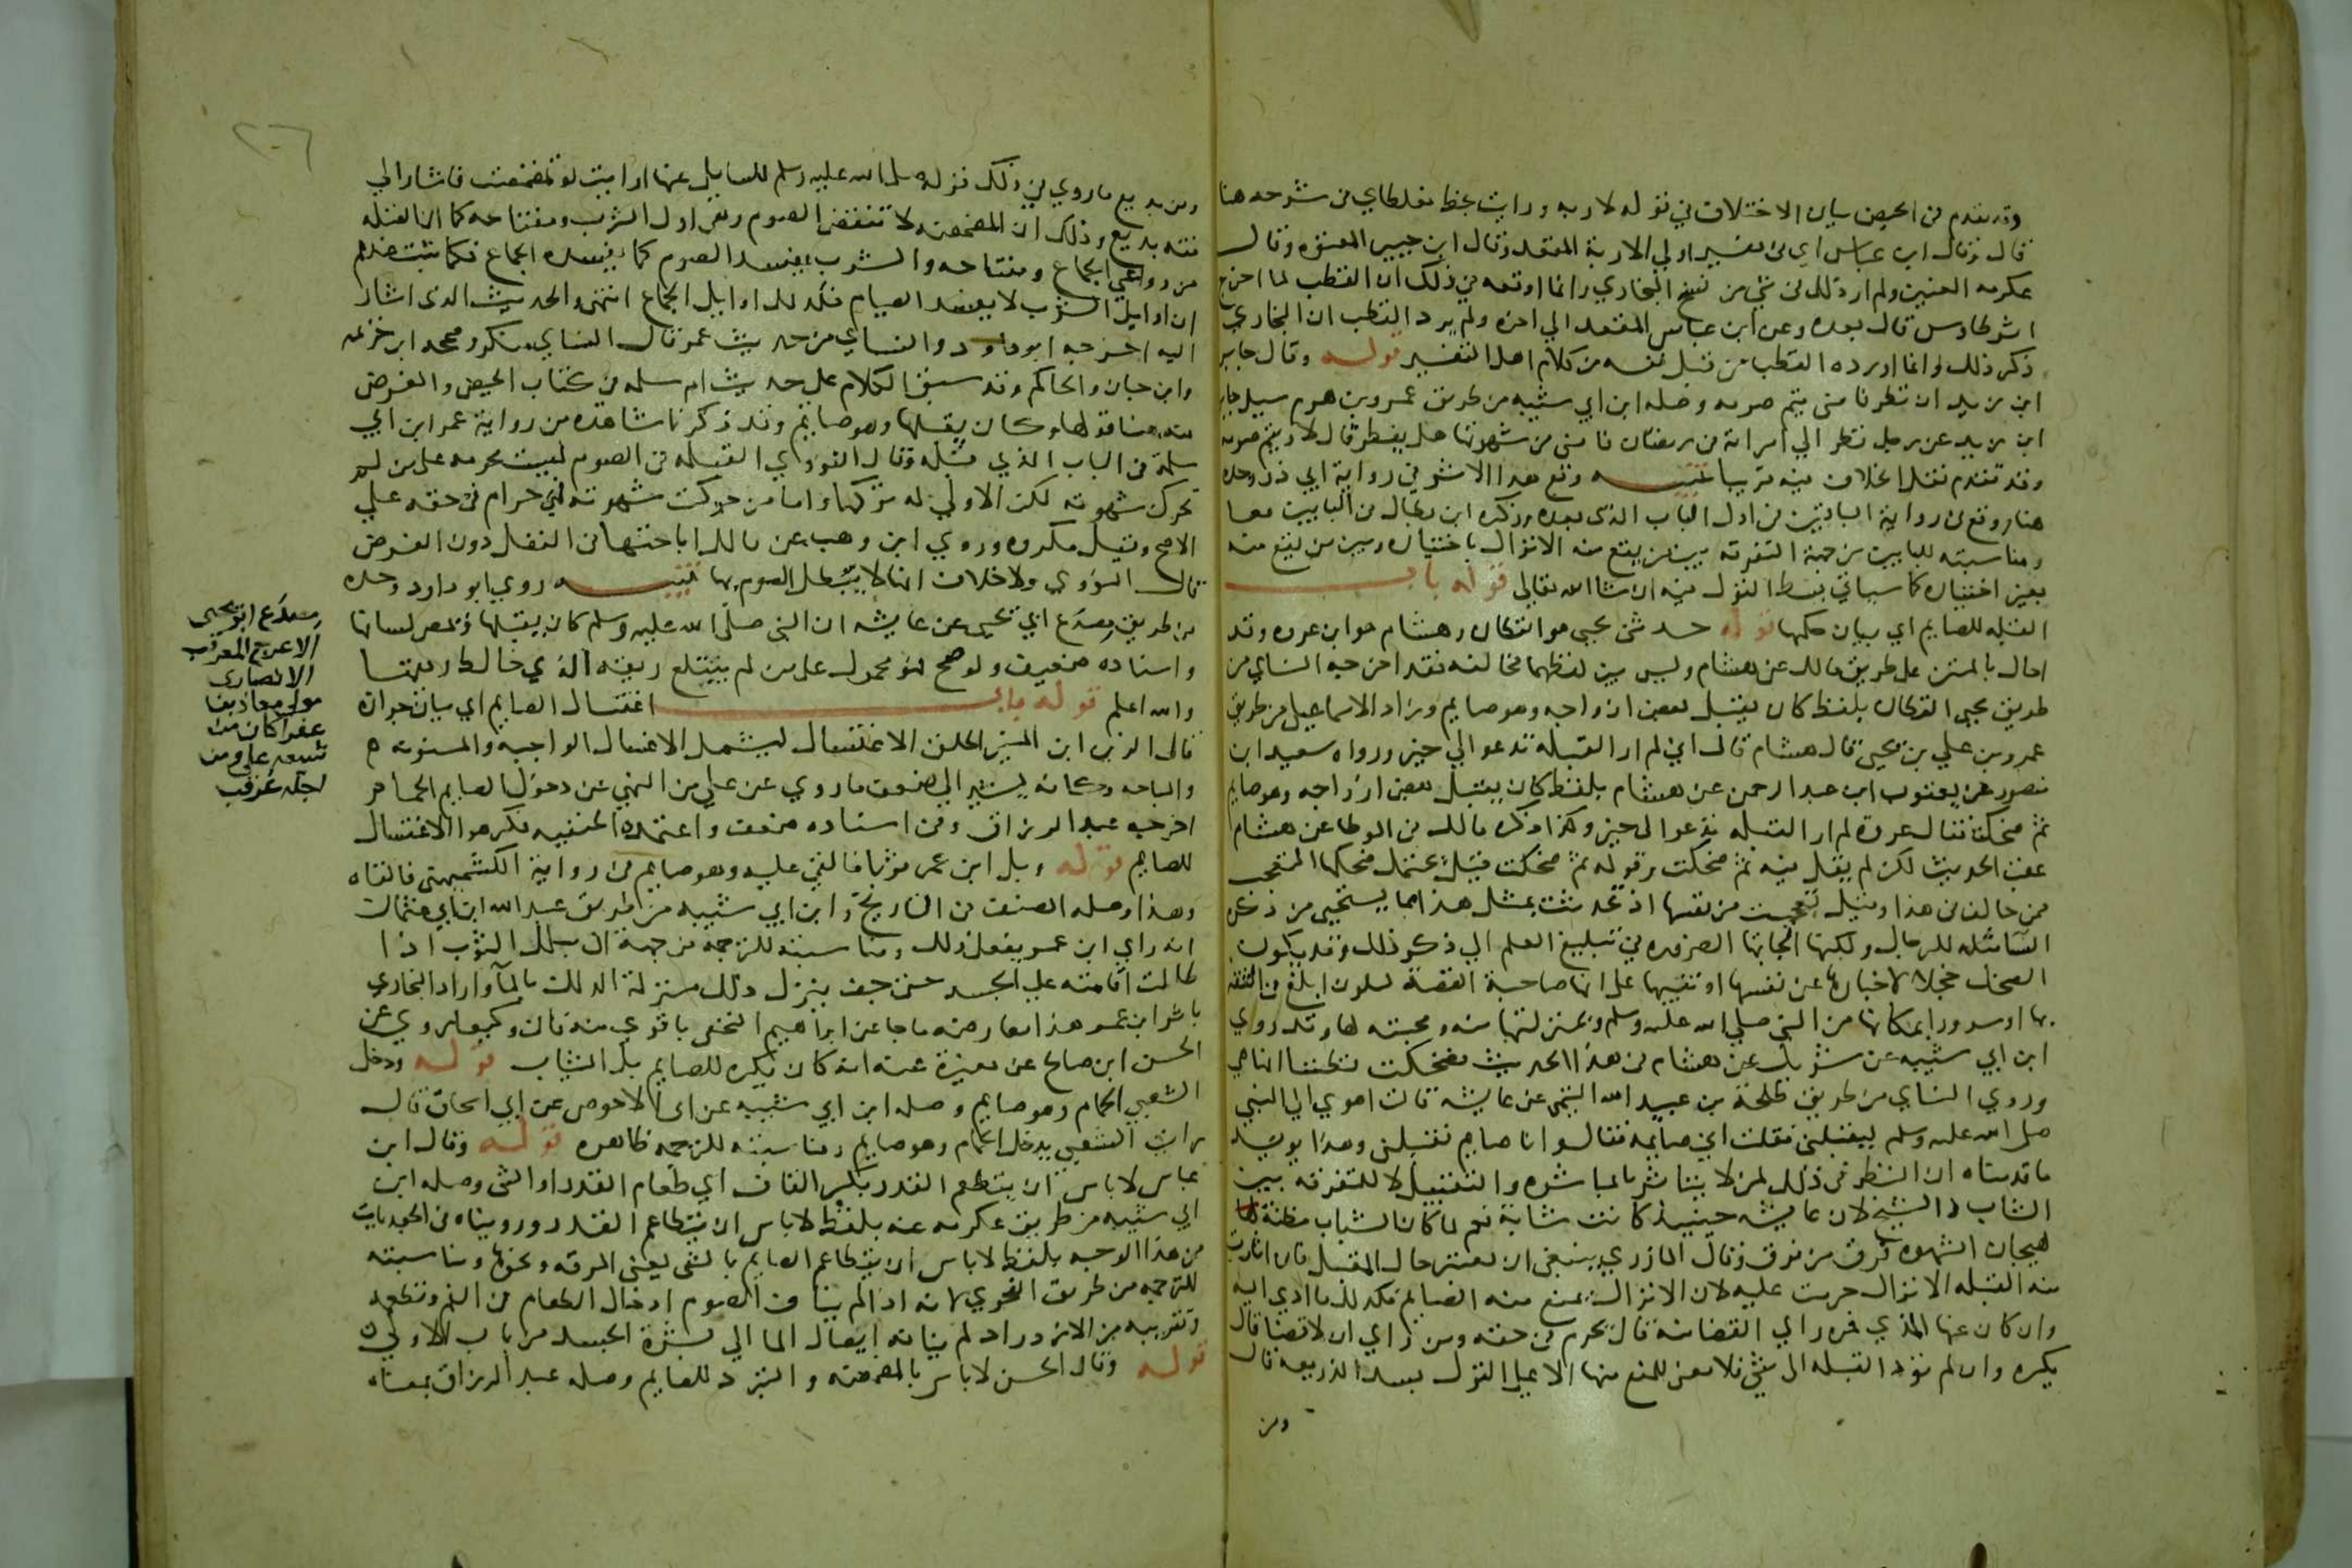 وقد تقدم في الحيض بيان الاختلاف في قوله لاربه ورايت بخط مغلطاي في شرحه هنا
قال وقال ابن عباس اي في تفسير اولي الاربة المقعد وقال ابن جبير المعتوه وقال
عكرمه العنين ولم ار ذلك في شي من نسخ البخاري وانما اوقعه في ذلك ان القطب لما اخرج
اثر طاوس قال بعده وعن ابن عباس المقعد الى اخره ولم يرد القطب ان البخاري
ذكر ذلك وانما اورده القطب من قبل نفسه من كلام اهل التفسير قوله وقال جابر
ابن زيد ان نظر فامنى يتم صومه وصله ابن ابي شيبه من طريق عمرو بن هرم سيل جابر
ابن زيد عن رجل نظر الى امراته في رمضان فامنى من شهوتها هل يفطر قال لا ويتم صومه
وقد تقدم نقل الخلاف فيه قريبا تنبيه وقع هذا الاثر في رواية ابي ذر وحده
هنا ووقع في رواية الباقين في اول الباب الذي بعده وذكره ابن بطال في البابين معا
ومناسبته للبابين من جهة التفرقه بين من يقع منه الانزال باختياره وبين من يقع منه
بغير اختياره كما سياتي بسط القول فيه ان شا الله تعالى قوله باب
القبله للصايم اي بيان حكمها قوله حدثني يحيى هو القطان وهشام هو ابن عروه وقد
احال بالمتن على طريق مالك عن هشام وليس بين لفظهما مخالفه فقد اخرجه النساي من
طريق يحيى القطان بلفظ كان يقبل بعض ازواجه وهو صايم وزاد الاسماعيلي من طريق
عمرو بن علي بن يحيى قال هشام قال اني لم ار القبلة تدعو الى خير ورواه سعيد ابن
منصور عن يعقوب ابن عبد الرحمن عن هشام بلفظ كان يقبل بعض ازواجه وهو صايم
ثم ضحكت فقال عروة لم ار القبله تدعو الى خير وكذا ذكره مالك في الموطا عن هشام
عقب الحديث لكن لم يقل فيه ثم ضحكت وقوله ثم ضحكت قيل يحتمل ضحكها التعجب
ممن خالف في هذا وقيل تعجبت من نفسها اذ تحدثت بمثل هذا مما يستحيى من ذكر
النسا مثله للرجال ولكنها الجاتها الضروره في تبليغ العلم الى ذكر ذلك وقد يكون
الضحك خجلا لاخبارها عن نفسها او تنبيها على انها صاحبة القصة ليكون ابلغ في الثقه
بها او سرورا بمكانها من النبي صلى الله عليه وسلم وبمنزلتها منه ومحبته لها وقد روى
ابن ابي شيبه عن شريك عن هشام في هذا الحديث فضحكت فظننا انها هي
وروى النساي من طريق طلحة بن عبيد الله التيمي عن عايشة قالت اهوى الي النبي
صلى الله عليه وسلم ليقبلني فقلت اني صايمه فقال وانا صايم فقبلني وهذا يويد
ما قدمناه ان النظر في ذلك لمن لا يتاثر بالمباشره والتقبيل لا للتفرقه بين
الشاب والشيخ لان عايشه حينيذ كانت شابة نعم لما كان الشباب مظنة لها
لهيجان الشهوه فرق من فرق وقال المازري ينبغي ان يعتبر حال المقبل فان اثارت
منه القبله الانزال حرمت عليه لان الانزال يمنع منه الصايم فكذلك ما ادى اليه
وان كان عنها المذي فمن راى القضا منه قال يحرم في حقه ومن راى ان لا قضا قال
يكره وان لم تود القبله الى شي فلا معنى للمنع منها الا على القول بسد الذريعه قال
ومن
ومن بديع ما روي في ذلك قوله صلى الله عليه وسلم للسايل عنها ارايت لو تمضمضت فاشار الى
فقه بديع وذلك ان المضمضه لا تنقض الصوم وهي اول الشرب ومفتاحه كما ان القبله
من دواعي الجماع ومفتاحه والشرب يفسد الصوم كما يفسده الجماع فكما ثبت عندهم
ان اوايل الشرب لا يفسد الصيام فكذلك اوايل الجماع انتهى والحديث الذي اشار
اليه اخرجه ابو داود والنساي من حديث عمر قال النساي منكر وصححه ابن خزيمه
وابن حبان والحاكم وقد سبق الكلام على حديث ام سلمه في كتاب الحيض والغرض
منه هنا قولها وكان يقبلها وهو صايم وقد ذكرنا شاهده من رواية عمر ابن ابي
سلمة في الباب الذي قبله وقال النووي القبله في الصوم ليست محرمه على من لم
تحرك شهوته لكن الاولى له تركها واما من حركت شهوته فهي حرام في حقه على
الاصح وقيل مكروه وروى ابن وهب عن مالك اباحتها في النفل دون الفرض
قال النووي ولا خلاف انها لا تبطل الصوم بها تنبيه روى ابو داود وحده
من طريق مصدع ابي يحيى عن عايشه ان النبي صلى الله عليه وسلم كان يقبلها ويمص لسانها
واسناده ضعيف ولو صح فهو محمول على من لم يبتلع ريقه الذي خالط ريقها
والله اعلم قوله باب اغتسال الصايم اي بيان جوازه
قال الزين ابن المنير اطلق الاغتسال ليشمل الاغسال الواجبه والمسنونه
والمباحه وكانه يشير الى ضعف ما روي عن علي من النهي عن دخول الصايم الحمام
اخرجه عبد الرزاق وفي اسناده ضعف واعتمده الحنفيه فكرهوا الاغتسال
للصايم قوله وبل ابن عمر ثوبا فالقي عليه وهو صايم في رواية الكشميهني فالقاه
وهذا وصله المصنف في التاريخ وابن ابي شيبه من طريق عبد الله ابن ابي عثمان
انه راى ابن عمر يفعل ذلك ومناسبته للترجمه من جهة ان بلل الثوب اذا
طالت اقامته على الجسد حتى جف ينزل ذلك منزلة الدلك بالما واراد البخاري
باثر ابن عمر هذا معارضة ما جا عن ابراهيم النخعي باقوى منه فان وكيعا روى عن
الحسن ابن صالح عن مغيرة عنه انه كان يكره للصايم بل الثياب قوله ودخل
الشعبي الحمام وهو صايم وصله ابن ابي شيبه عن ابي الاحوص عن ابي اسحاق قال
رايت الشعبي يدخل الحمام وهو صايم ومناسبته للترجمه ظاهره قوله وقال ابن
عباس لا باس ان يتطعم القدر بكسر القاف اي طعام القدر او الشي وصله ابن
ابي شيبه من طريق عكرمه عنه بلفظ لا باس ان يتطاعم القدر ورويناه في الجعديات
من هذا الوجه بلفظ لا باس ان يتطاعم الصايم بالشي يعني المرقه ونحوها ومناسبته
للترجمه من طريق الفحوى لانه اذا لم يناف الصوم ادخال الطعام في الفم وتطعمه
وتقريبه من الازدراد لم ينافه ايصال الما الى بشرة الجسد من باب الاولى
قوله وقال الحسن لا باس بالمضمضه والتبرد للصايم وصله عبد الرزاق بمعناه
مصدع ابو يحيى
الاعرج المعرقب
الانصاري
مولى معاذ بن
عفرا كان من
شيعه علي ومن
اجله عرقب